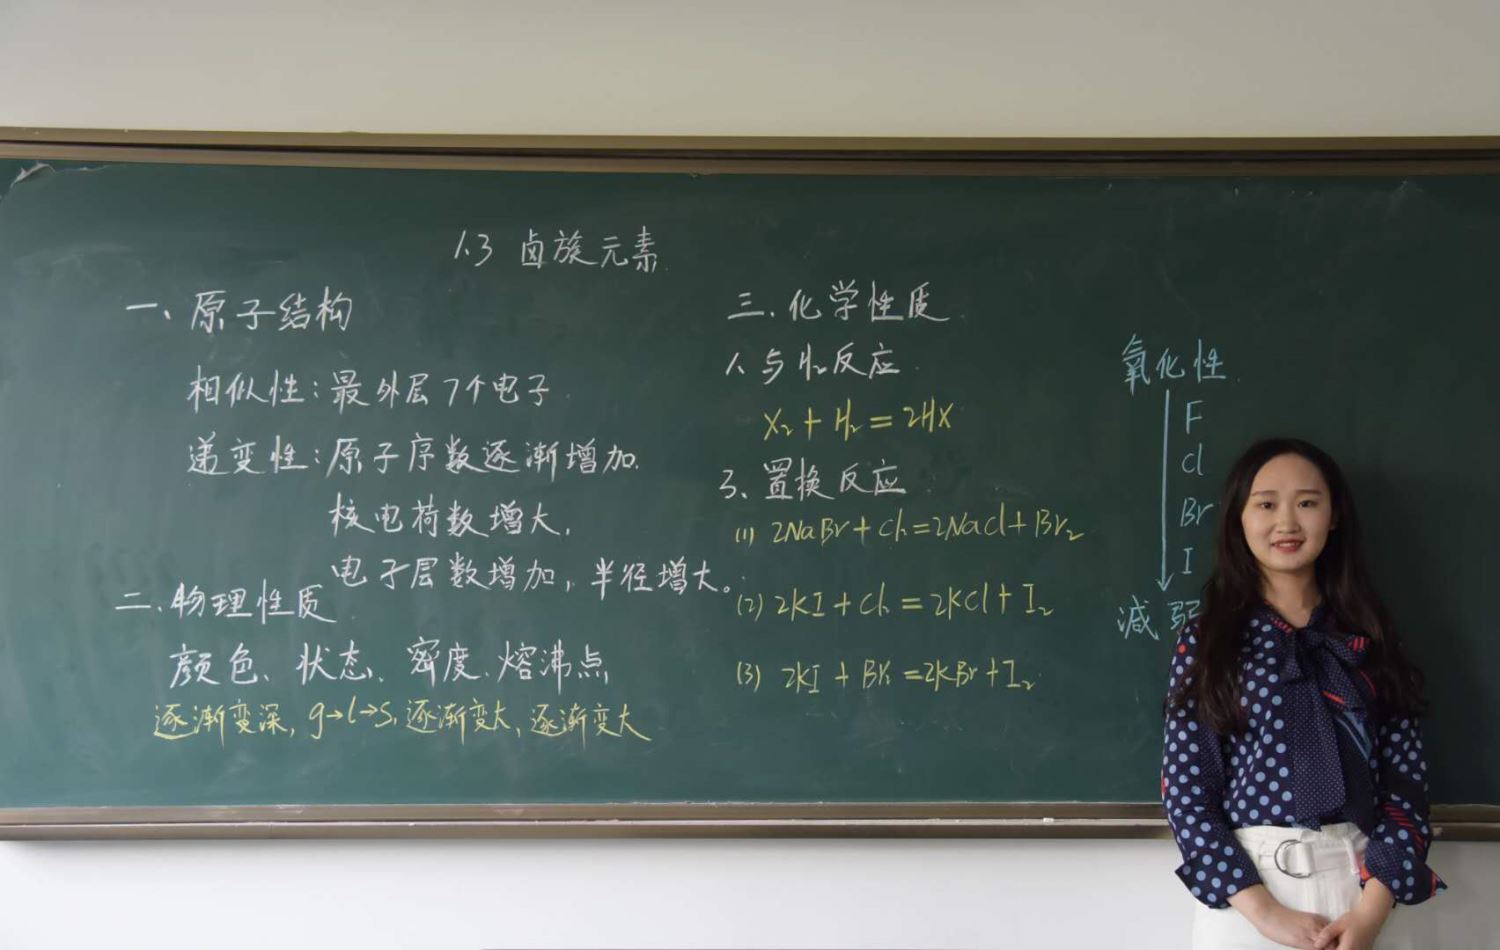 1.3 卤族元素
一、原子结构
相似性:最外层7个电子
递变性:原子序数逐渐增加.
核电荷数增大,
电子层数增加,半径增大。
二、物理性质
颜色、状态、密度、熔沸点
逐渐变深, g→l→s, 逐渐变大、逐渐变大
三、化学性质
1、与H₂反应
X₂+H₂=2HX
3、置换反应
(1) 2NaBr+Cl₂=2NaCl+Br₂
(2) 2KI+Cl₂=2KCl+I₂
(3) 2KI+Br₂=2KBr+I₂
氧化性
F
Cl
Br
I
减弱